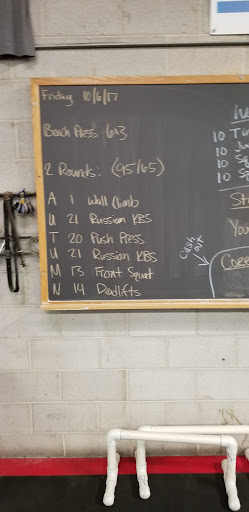 Friday 10/6/17
Bench Press 6x3
2 Rounds: (95/65)
A 1 Wall Climb
U 21 Russian KBS
T 20 Push Press
U 21 Russian KBS
M 13 Front Squat
N 14 Deadlifts
10
10
10
10
You
Cash out